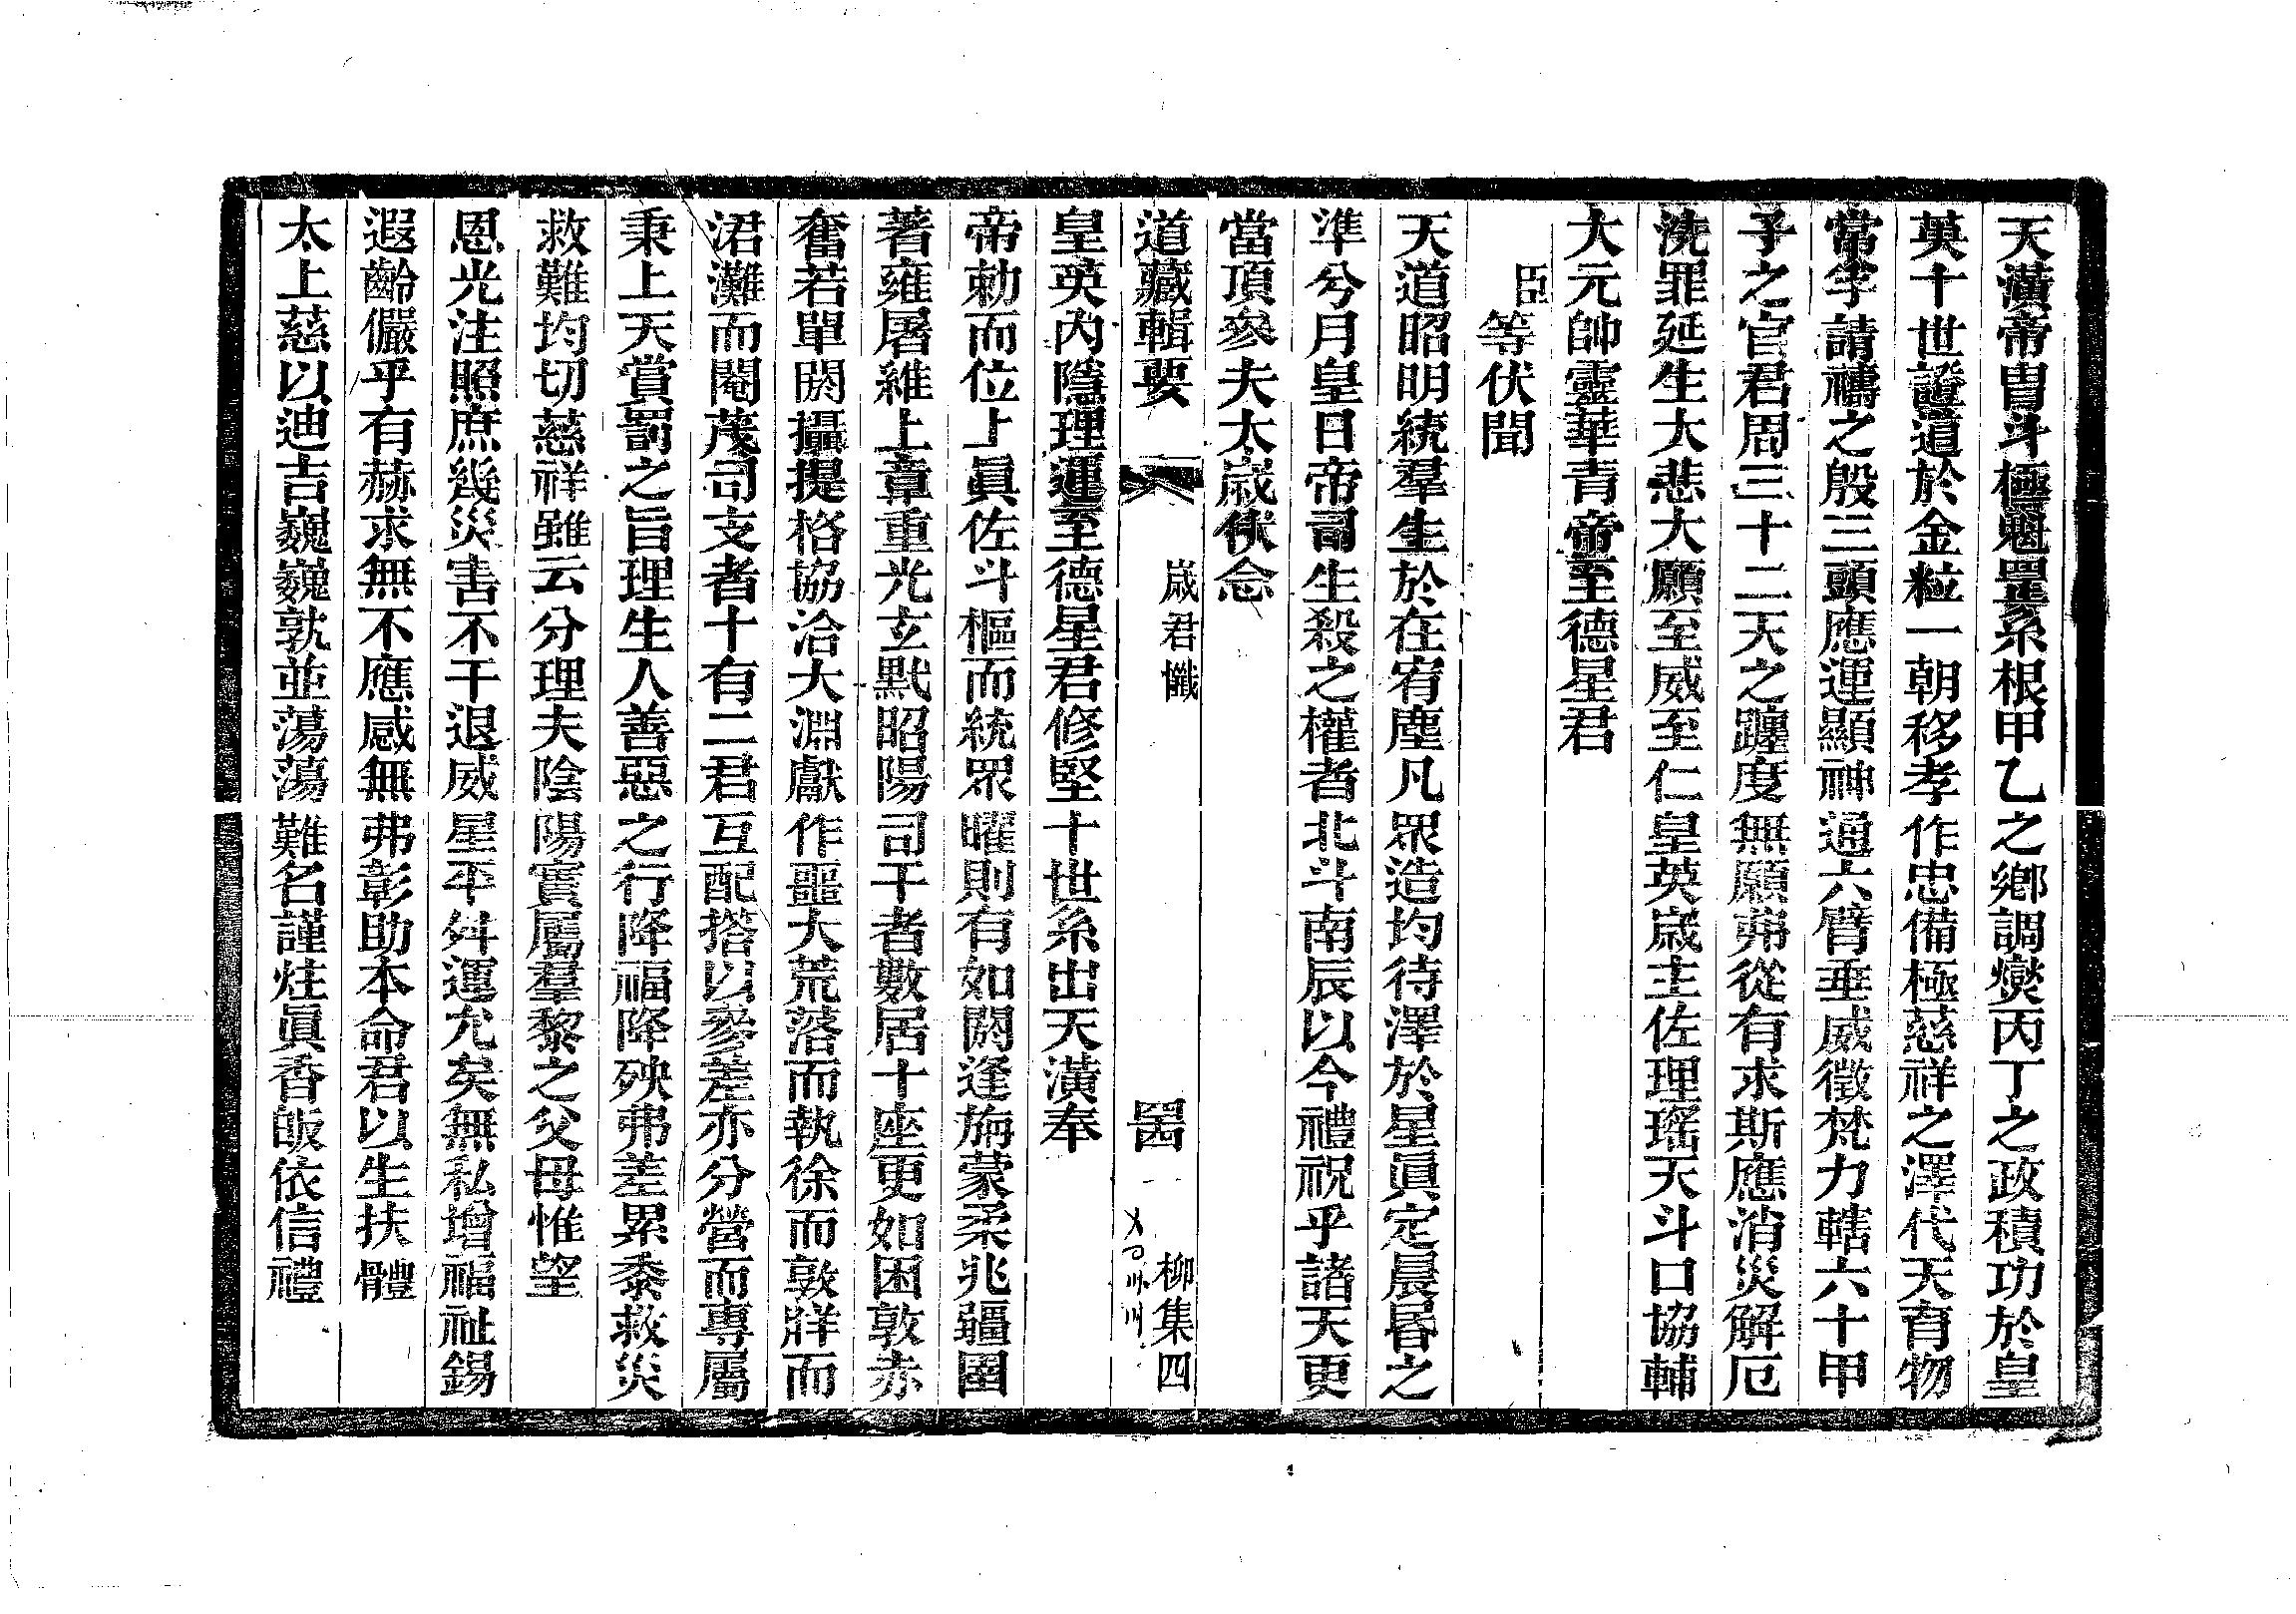 天潢帝胄斗極魁罡系根甲乙之鄉調爕丙丁之政積功於皇
英十世證道於金粒一朝移孝作忠備極慈祥之澤代天育物
常孚請禱之殷三頭應運顯神通六臂垂威徵梵力轄六十甲
子之官君周三十二天之躔度無願弗從有求斯應消災解厄
洗罪延生大悲大願至威至仁皇英歲主佐理瑤天斗口協輔
大元帥靈華青帝至德星君
臣等伏聞
天道昭明統羣生於在宥塵凡眾造均待澤於星眞定晨昬之
準兮月皇日帝司生殺之權者北斗南辰以今禮祝乎諸天更
當頂參夫太歲伏念
道藏輯要
歲君懺
柳集四
皇英內隱理運至德星君修堅十世系出天潢奉
帝勅而位上眞佐斗樞而統眾曜則有如閼逢旃蒙柔兆疆圉
著雍屠維上章重光玄黓昭陽司干者數居十座更如困敦赤
奮若單閼攝提格協洽大淵獻作噩大荒落而執徐而敦牂而
涒灘而閹茂司支者十有二君互配搭以參差亦分營而專屬
秉上天賞罰之旨理生人善惡之行降福降殃弗差累黍救災
救難均切慈祥雖云分理夫陰陽實屬羣黎之父母惟望
恩光注照庶幾災害不干退威星平舛運尤矣無私增福祉錫
遐齡儼乎有赫求無不應感無弗彰助本命君以生扶體
太上慈以迪吉巍巍孰並蕩蕩難名謹炷眞香皈依信禮